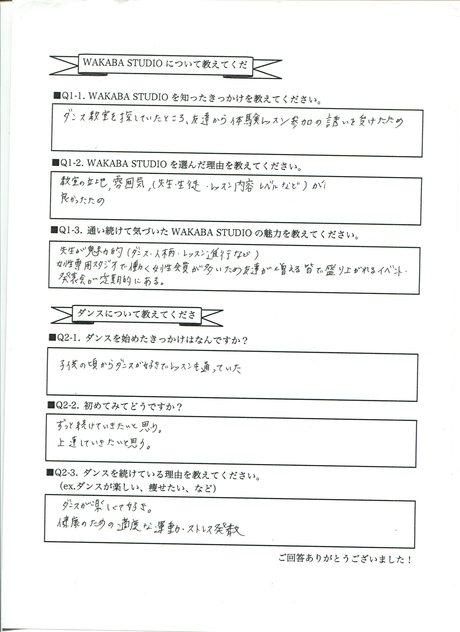 WAKABA STUDIO について教えてくだ
■Q1-1. WAKABA STUDIO を知ったきっかけを教えてください。
ダンス教室を探していたところ、友達から体験レッスン参加の誘いを受けたため
■Q1-2. WAKABA STUDIO を選んだ理由を教えてください。
教室の立地,雰囲気,(先生・生徒・レッスン内容 レベルなど)が
良かったため
■Q1-3. 通い続けて気づいた WAKABA STUDIO の魅力を教えてください。
先生が魅力的(ダンス・人柄・レッスン進行など)
女性専用スタジオで働く女性会員が多いため友達が増える 皆で盛り上がれるイベント・
発表会が定期的にある。
ダンスについて教えてくださ
■Q2-1. ダンスを始めたきっかけはなんですか?
子供の頃からダンスが好きでレッスンも通っていた
■Q2-2. 初めてみてどうですか?
ずっと続けていきたいと思う。
上達していきたいと思う。
■Q2-3. ダンスを続けている理由を教えてください。
(ex.ダンスが楽しい、痩せたい、など)
ダンスが楽しくて好き。
健康のための適度な運動・ストレス発散
ご回答ありがとうございました!